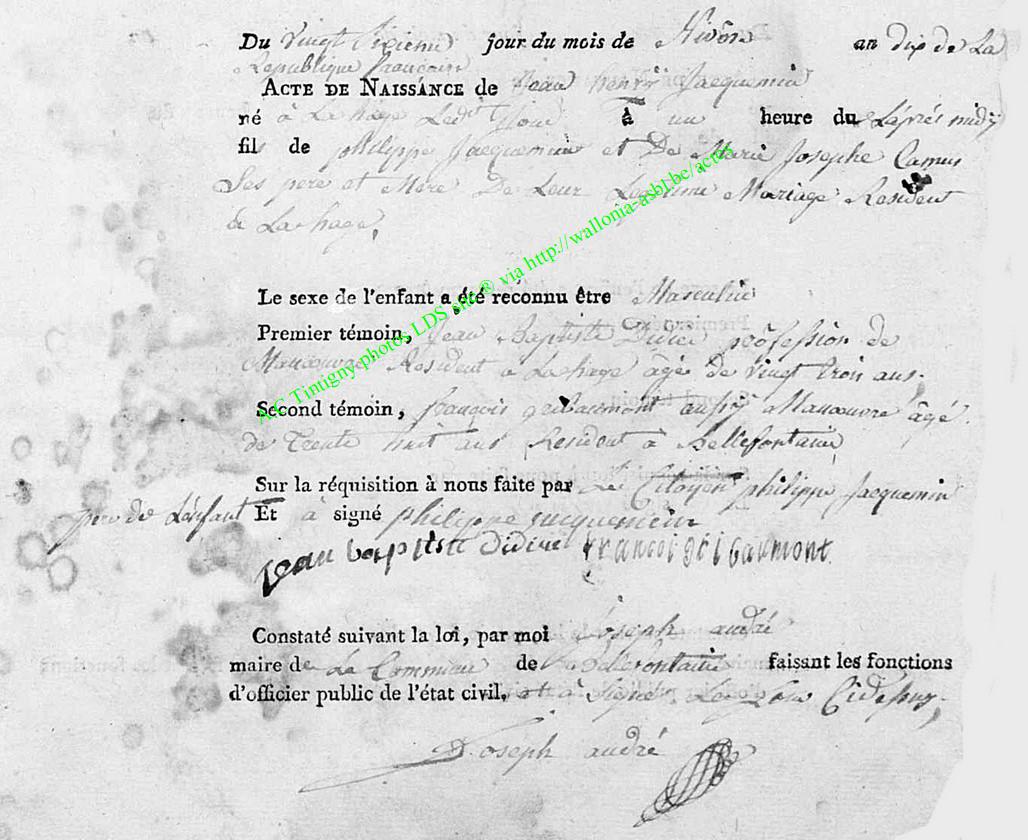 Du vingt sixieme jour du mois de Nivôse an dix de La
Republique francoise
ACTE DE NAISSANCE de Jean henry Jacquemin
né à Lahage Ledit jour à un heure du Laprés midy
fils de philippe Jacquemin et De Marie Josephe Camus
Ses pere et Mere De Leur Legitime Mariage Resident
à Lahage,
Le sexe de l'enfant a été reconnu être Masculin
Premier témoin, Jean Baptiste profession de
Manoeuvre Resident a Lahage âgé de vingt trois ans,
Second témoin, françois aussy Manoeuvre âgé
de Trente huit ans Resident à Bellefontaine
Sur la réquisition à nous faite par Le Citoyen philippe Jacquemin
pere de Lenfant Et à signé philippe jacquemin
jean baptiste francoi
Constaté suivant la loi, par moi Joseph andré
maire de La Commune de Bellefontaine faisant les fonctions
d'officier public de l'état civil, et à Signé Les jour Cidessus,
Joseph andré
AC Tintigny photos LDS enr® via http://wallonia-asbl.be/actes